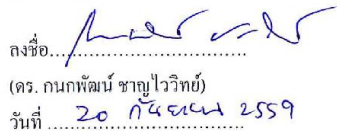 ลงชื่อ
(ดร. กนกพัฒน์ ชาญไววิทย์)
วันที่ 20 กันยายน 2559